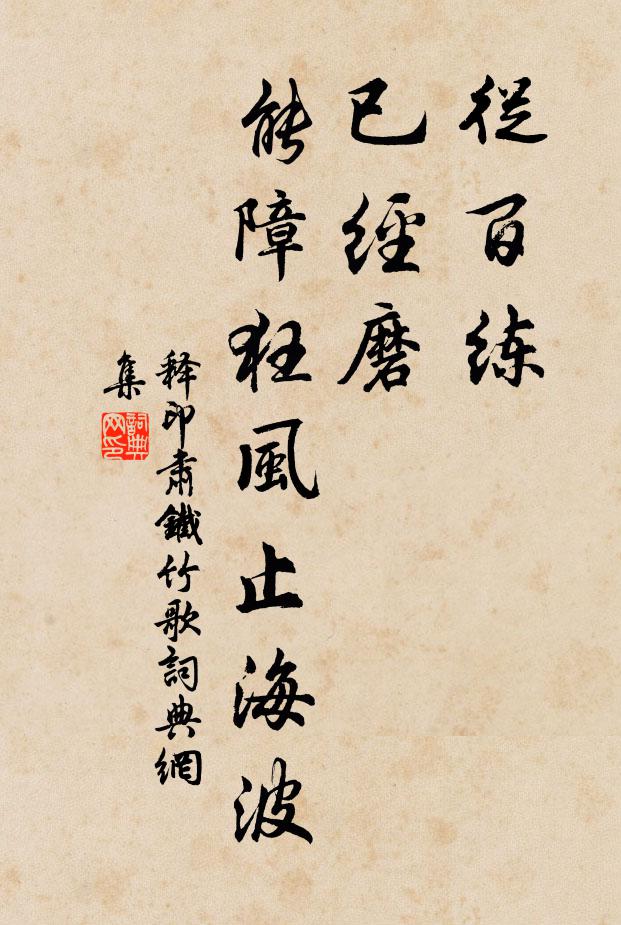 從百练
已經磨
能障狂風止海波
释印肅鐵竹歌詞典網
集
詞典
网印